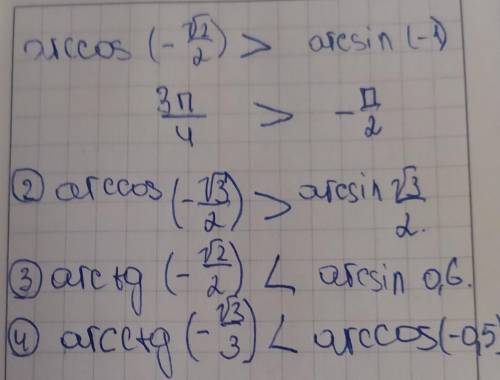 arccos (-√2/2) > arcsin (-1)
3π/4 > -π/2
② arccos (-√3/2) > arcsin √3/2.
③ arctg (-√2/2) < arcsin 0,6.
④ arcctg (-√3/3) < arccos(-0,5)